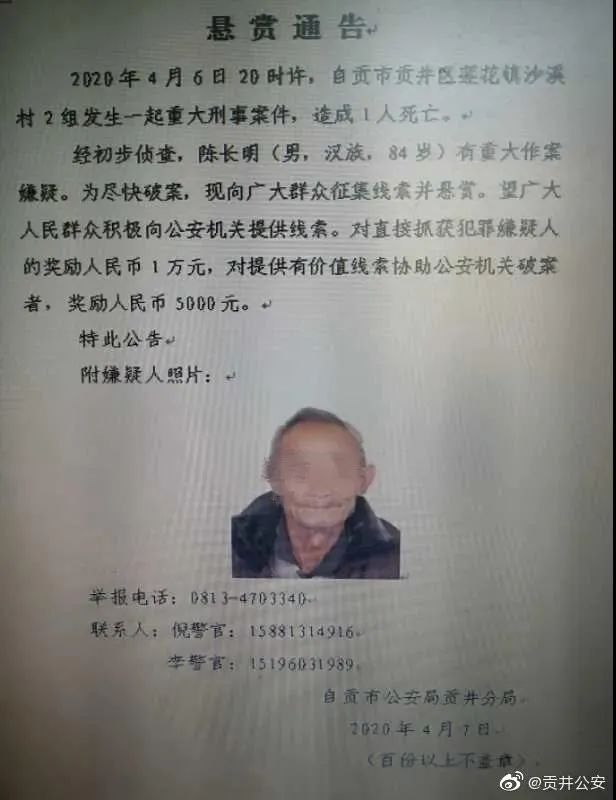 悬赏通告
2020年4月6日20时许，自贡市贡井区莲花镇沙溪
村2组发生一起重大刑事案件，造成1人死亡。
经初步侦查，陈长明（男，汉族，84岁）有重大作案
嫌疑。为尽快破案，现向广大群众征集线索并悬赏。望广大
人民群众积极向公安机关提供线索。对直接抓获犯罪嫌疑人
的奖励人民币1万元，对提供有价值线索协助公安机关破案
者，奖励人民币5000元。
特此公告
附嫌疑人照片：
举报电话：0813-4703340
联系人：倪警官：15881314916
李警官：15196031989
自贡市公安局贡井分局
2020年4月7日
（百份以上不盖章）
@贡井公安